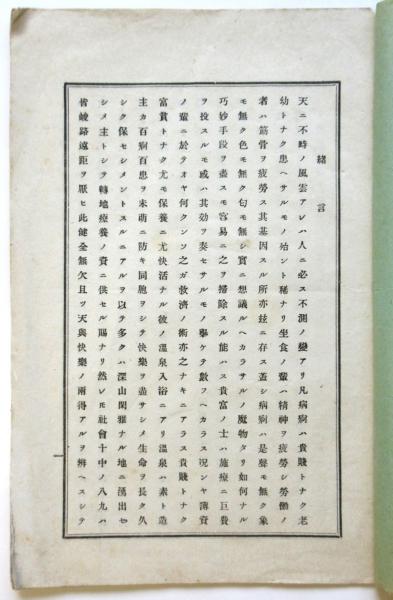 緒言
天ニ不時ノ風雲アレハ人ニ必ス不測ノ變アリ凡病痾ハ貴賤トナク老
幼トナク患ヘサルモノ殆ント稀ナリ坐食ノ輩ハ精神ヲ疲勞シ勞働ノ
者ハ筋骨ヲ疲勞ス其基因スル所亦玆ニ存ス蓋シ病痾ハ是聲モ無ク象
モ無ク色モ無ク匂モ無シ實ニ想議ルヘカラサルノ魔物タリ如何ナル
巧妙手段ヲ盡スモ容易ニ之ヲ掃除スル能ハス貴富ノ士ハ施療ニ巨費
ヲ投スルモ或ハ其効ヲ奏セサルモノ擧ケテ數フヘカラス况ンヤ薄資
ノ輩ニ於テオヤ何クンソ之ガ救濟ノ術亦之ナキニアラス貴賤トナク
富貧トナク尤モ保養ニ尤快活ナル彼ノ溫泉入浴ニアリ溫泉ハ素ト造
主カ百痾百患ヲ未萠ニ防キ同胞ヲシテ快樂ヲ盡サシメ生命ヲ長ク久
シク保セシメントスルニアルヲ以テ多クハ深山閑雅ナル地ニ湧出セ
シメ主トシテ轉地療養ノ資ニ供セル賜ナリ然レ𪜈社會十中ノ八九ハ
皆嶮路遠距ヲ厭ヒ此健全無欠且ツ天與快樂ノ兩得アルヲ辨ヘスシテ
一